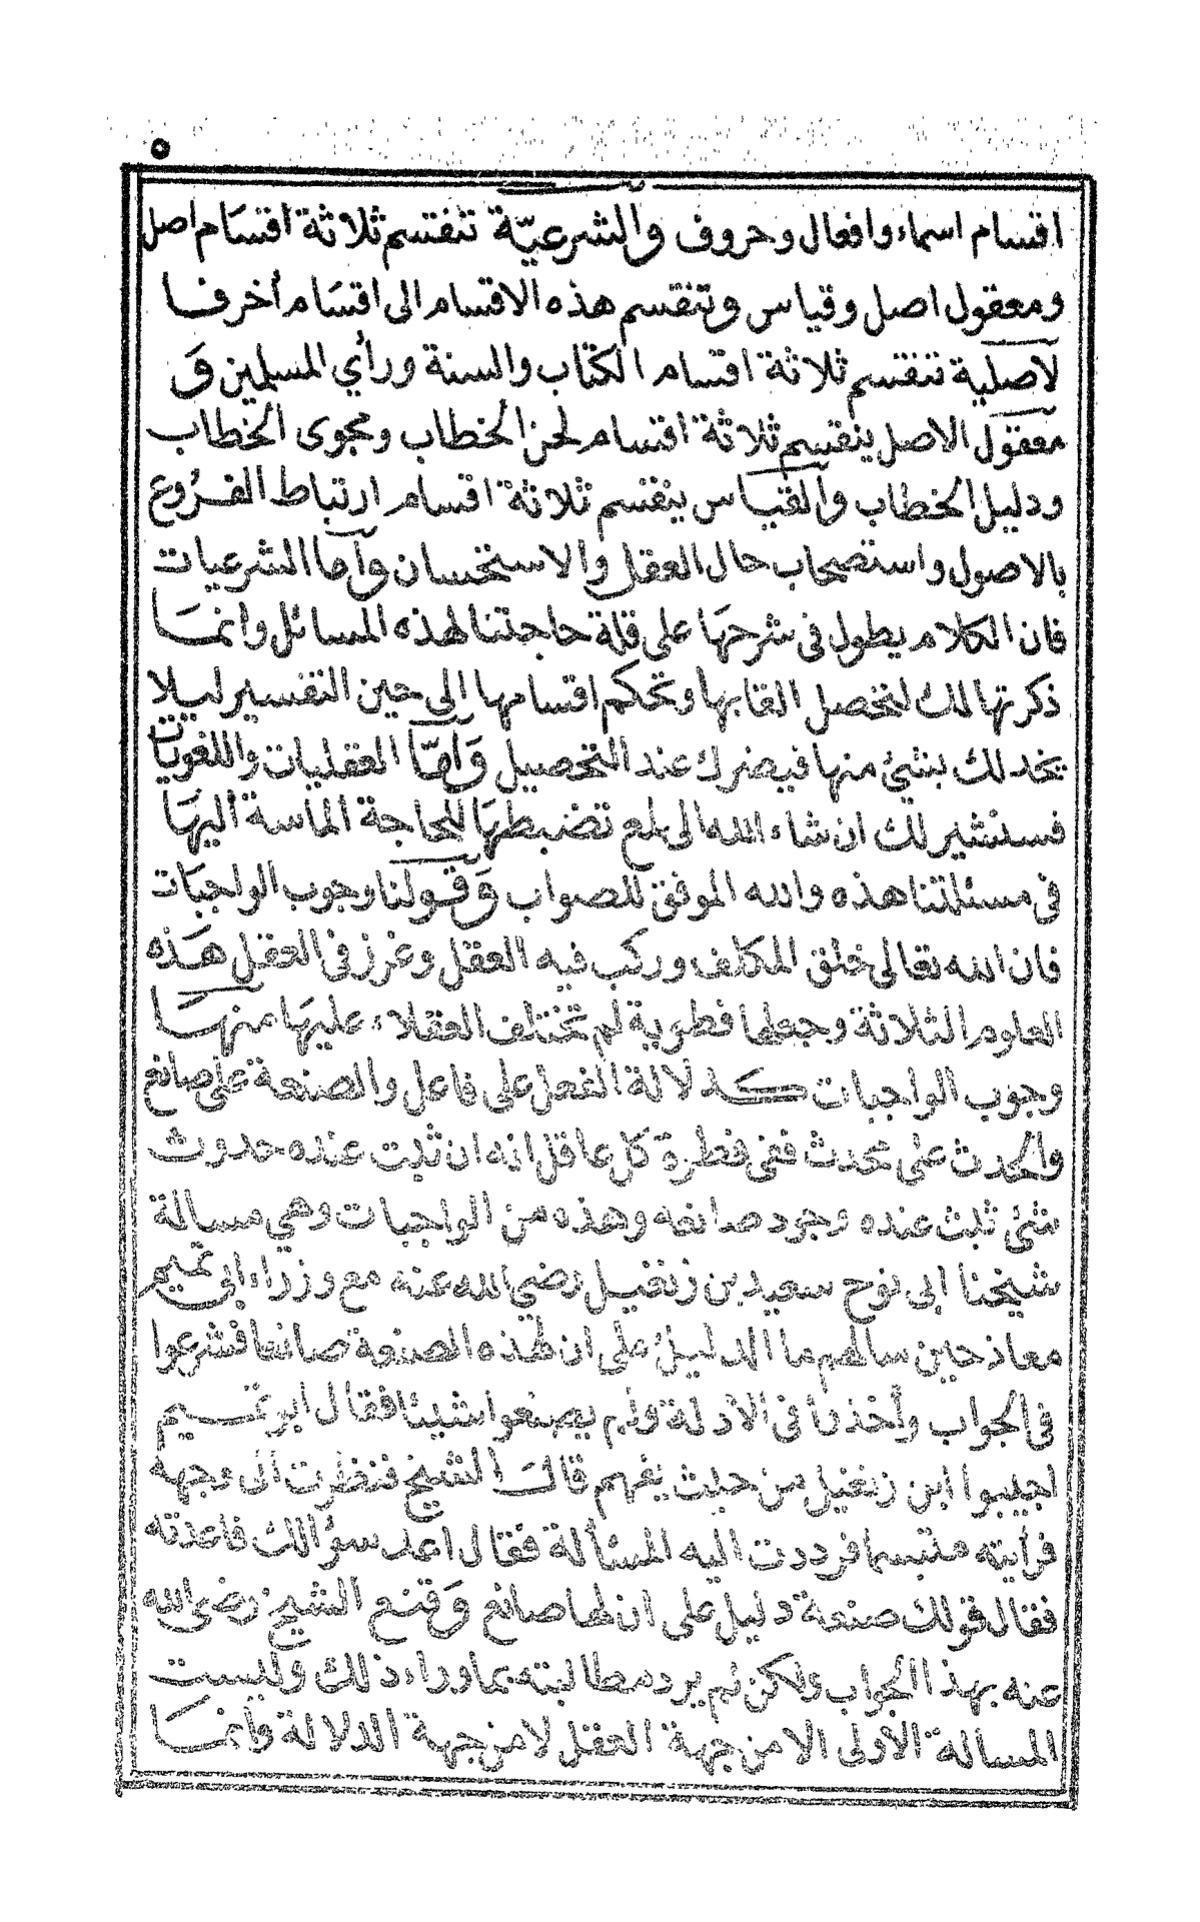 ٥
اقسام اسماء وافعال وحروف والشرعيّة تنقسم ثلاثة اقسَام اصل
ومعقول اصل وقياس وتنقسم هذه الاقسام الى اقسَام أخر فا
لاصلية تنقسم ثلاثة اقسام الكتاب والسنة ورأي المسلمين وَ
معقول الاصل ينقسم ثلاثة اقسام لحن الخطاب وفحوى الخطاب
ودليل الخطاب والقياس ينقسم ثلاثة اقسام ارتباط الفرُوع
بالاصول واستصحاب حال العقل والاستحسان وأما الشرعيات
فان الكلام يطول في شرحهَا على قلة حاجتنا لهذه المسائل وانمَا
ذكرتها لك لتحصل القابها وتحكم اقسامها الى حين التفسير ليلا
يخد لك بشئ منها فيضرك عند التحصيل وَامّا العقليات واللغويات
فسنشير لك ان شاء الله الى بلع تضبطهَا للحاجة الماسة اليهَا
في مسئلتنا هذه والله الموفق للصواب وَقولنا وجوب الواجبَات
فان الله تعالى خلق المكلف وركب فيه العقل وغرز في العقل هَذه
العلوم الثلاثة وجعلها فطرية لم تختلف العقلاء عليهَا منهَا
وجوب الواجبات كدلالة الفعل على فاعل والصنعة على صانع
والمحدث على محدث ففي فطرة كل عاقل انه ان ثبت عنده حدوث
شئ ثبت عنده وجود صانعه وهذه من الواجبات وهي مسالة
شيخنا ابى نوح سعيد بن زنغيل رضي الله عنه مع وزراء ابى تميم
معاذ حين سالهم ما الدليلُ على ان لهذه الصنعة صانعا فشرعوا
في الجواب وأخذنا في الادلة ولم يصنعوا شيئا فقال ابو تميم
اجيبوا ابن زنغيل من حيث يفهم قال الشيخ فنظرت الى وجهه
فرأيته متبسما فرددت اليه المسئألة فقال اعد سؤالك فاعدته
فقال قولك صنعة دليل على ان لها صانع وَقنع الشيخ رضى الله
عنه بهذا الجواب ولكن لم يرد مطالبته بما وراء ذلك وليست
المسالة الأولى الا من جهة العقل لا من جهة الدلالة وأنمَا